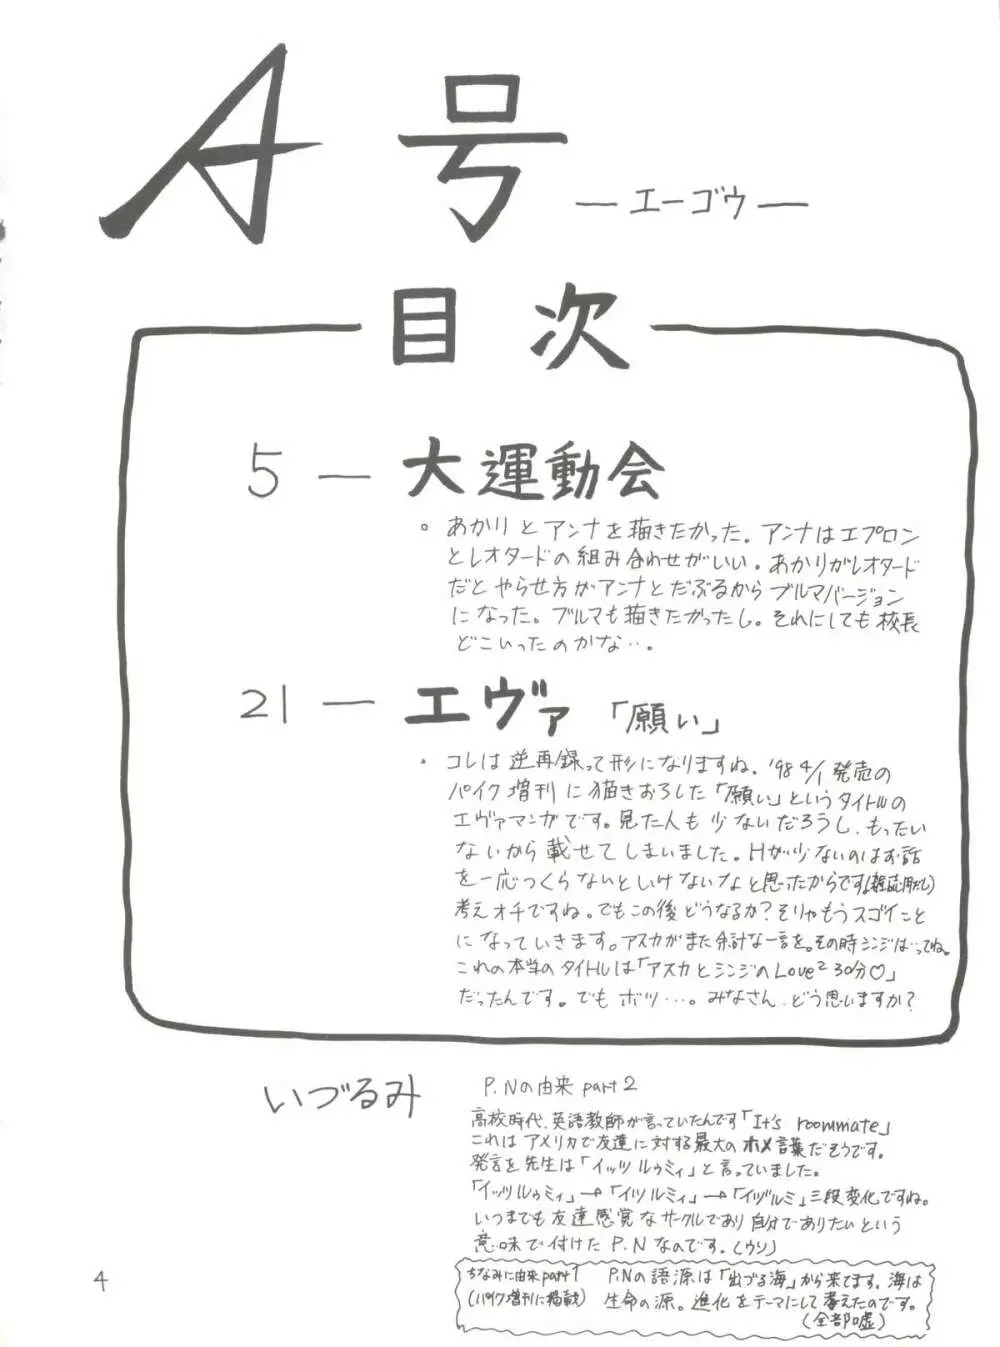 A号
—エーゴウ—
目次
5 — 大運動会
。あかりとアンナを描きたかった。アンナはエプロン
とレオタードの組み合わせがいい。あかりがレオタード
だとやらせ方がアンナとだぶるからブルマバージョン
になった。ブルマも描きたかったし。それにしても校長
どこいったのかな…。
21 — エヴァ「願い」
・コレは逆再録って形になりますね。'98 4/1 発売の
パイク増刊に描きおろした「願い」というタイトルの
エヴァマンガです。見た人も少ないだろうし、もったい
ないから載せてしまいました。Hが少ないのはお話
を一応つくらないといけないなと思ったからです
考えオチですね。でもこの後どうなるか?そりゃもうスゴイこと
になっていきます。アスカがまた余計な一言を。その時シンジは…ってね。
これの本当のタイトルは「アスカとシンジのLove² 30分♡」
だったんです。でもボツ…。みなさん、どう思いますか?
いづるみ
P.Nの由来 part 2
高校時代、英語教師が言っていたんです「It's roommate」
これはアメリカで友達に対する最大のホメ言葉だそうです。
発言を先生は「イッツ ルゥミィ」と言っていました。
「イッツルゥミィ」→「イツルミィ」→「イヅルミ」三段変化ですね。
いつまでも友達感覚なサークルであり自分でありたいという
意味で付けたP.Nなのです。(ウソ)
ちなみに由来part1 P.Nの語源は「出づる海」から来てます。海は
(パイク増刊に掲載) 生命の源。進化をテーマにして考えたのです。
(全部嘘)
4